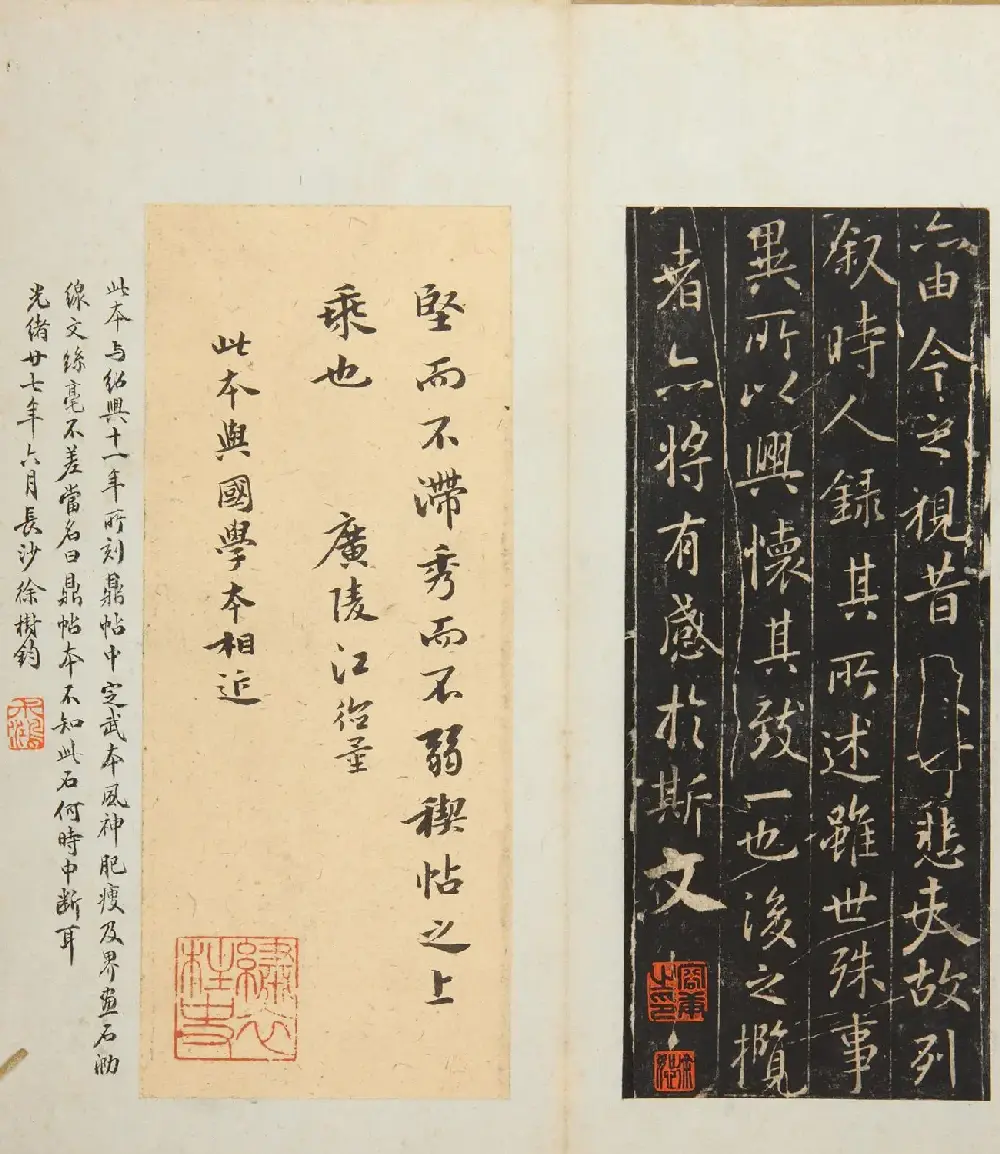 亦由今之視昔
悲夫故列
叙時人錄其所述雖世殊事
異所以興懷其致一也後之攬
者亦將有感於斯文
堅而不滯秀而不弱稧帖之上
乘也 廣陵江
此本與國學本相近
繡衣柱史
此本与紹興十一年所刻鼎帖中定武本風神肥瘦及界畫石泐
線文絲毫不差當名曰鼎帖本不知此石何時中断耳
光緒廿七年六月長沙徐樹鈞